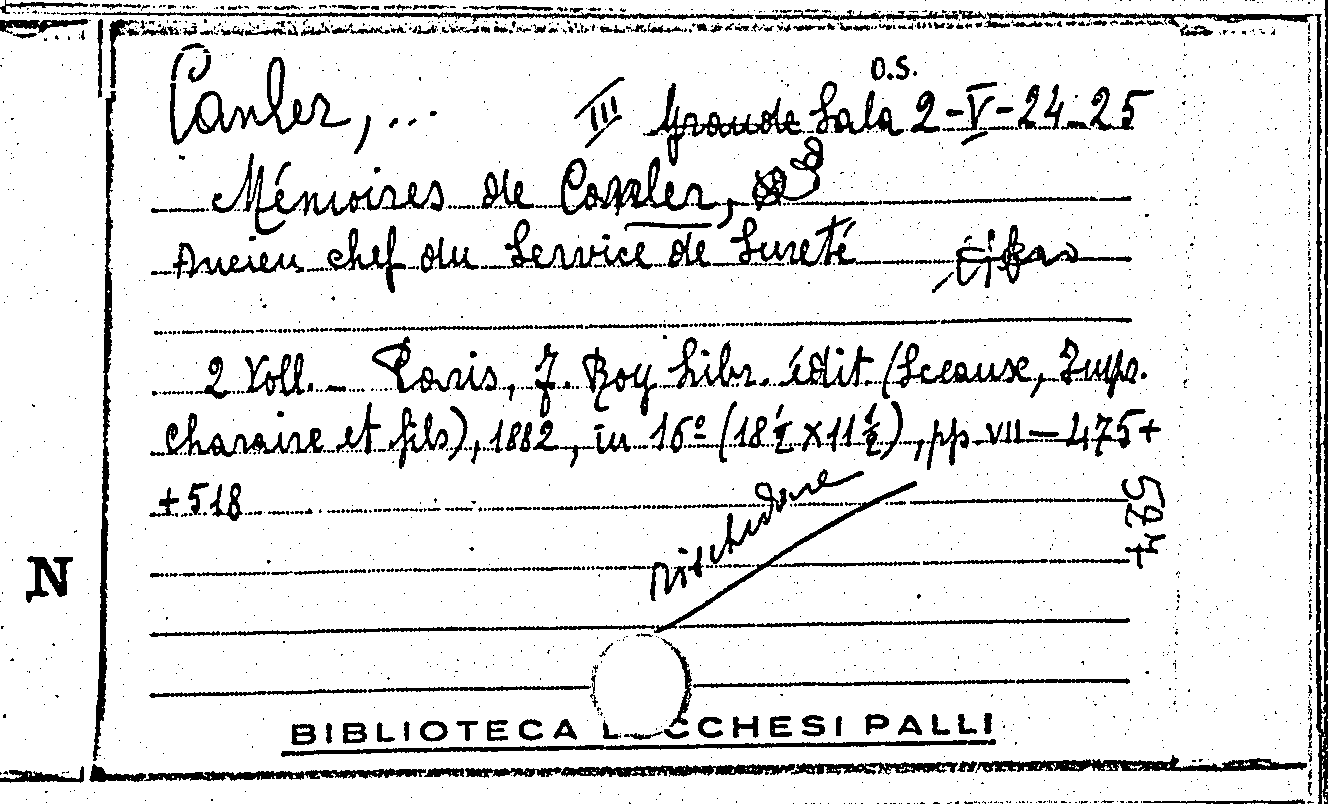 Canler, ...
O.S.
III Grande Sala 2-V-24-25
Mémoires de Canler,
Ancien chef du Service de Sureté
2 Voll. - Paris, F. Roy libr. édit (Sceaux, Impr.
Charaire et fils), 1882, in 16º (18½ x 11½), pp. VII — 475 +
+ 518
rischedare
N
BIBLIOTECA LUCCHESI PALLI